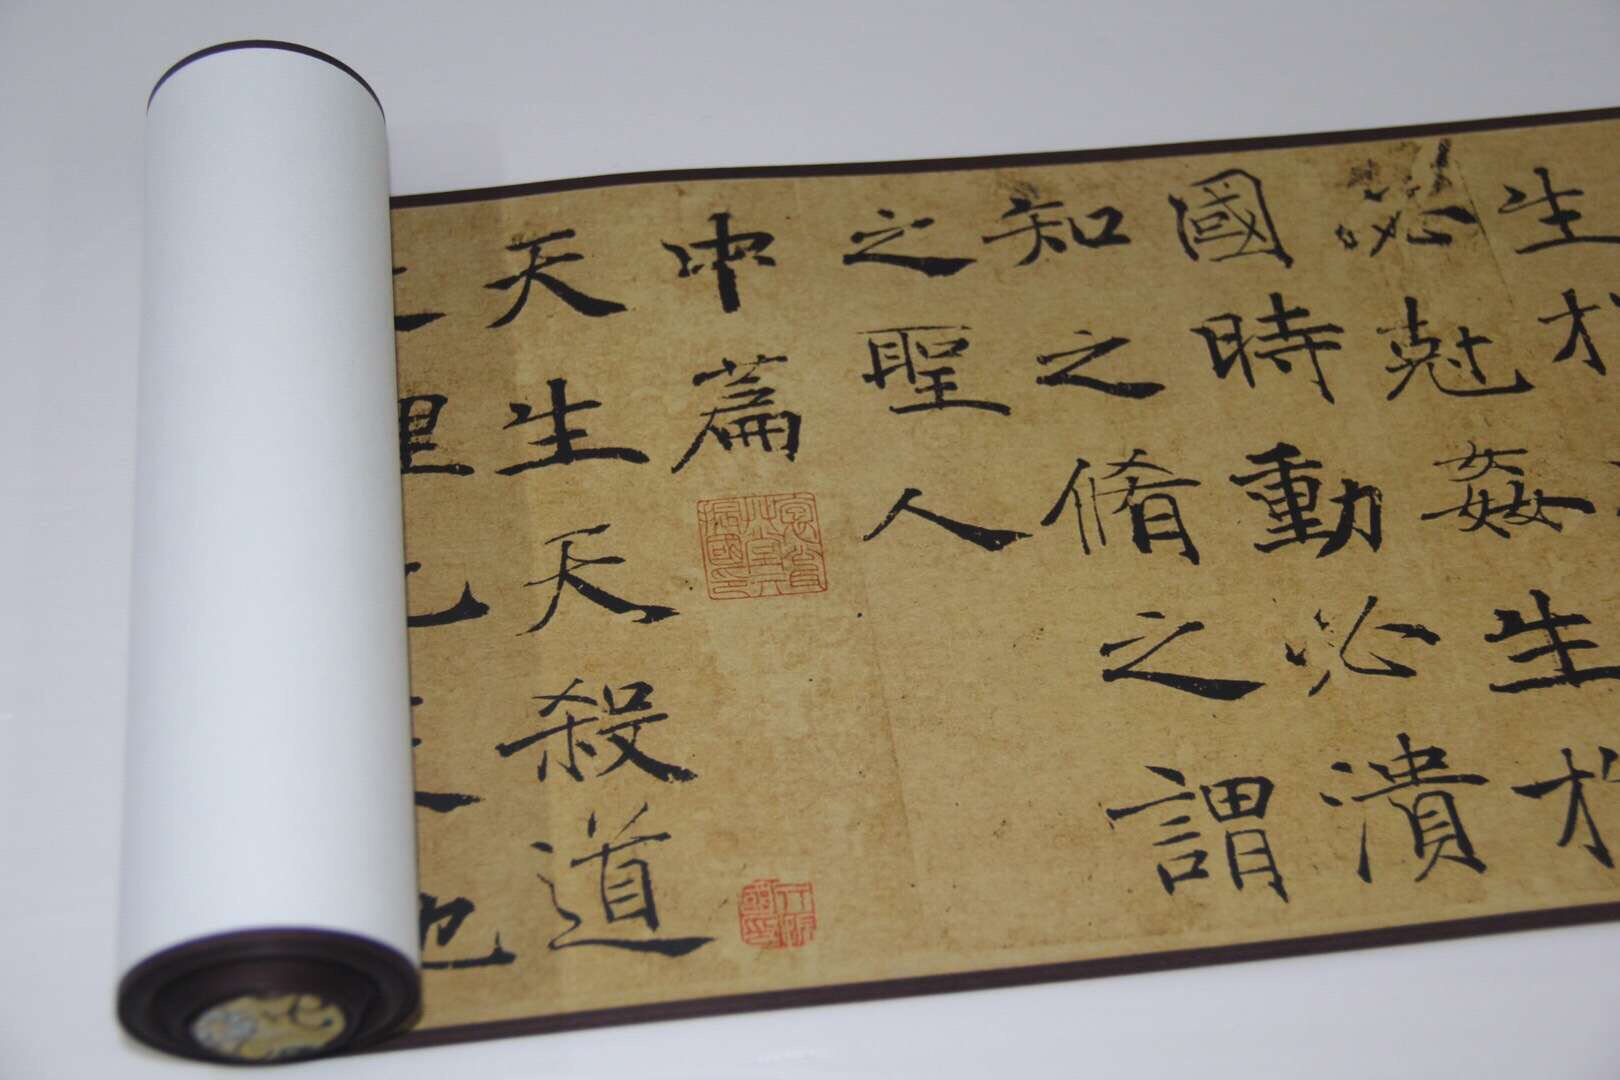 生
必尅姦生
國時動必潰
知之脩之謂
之聖人
中篇
天生天殺道